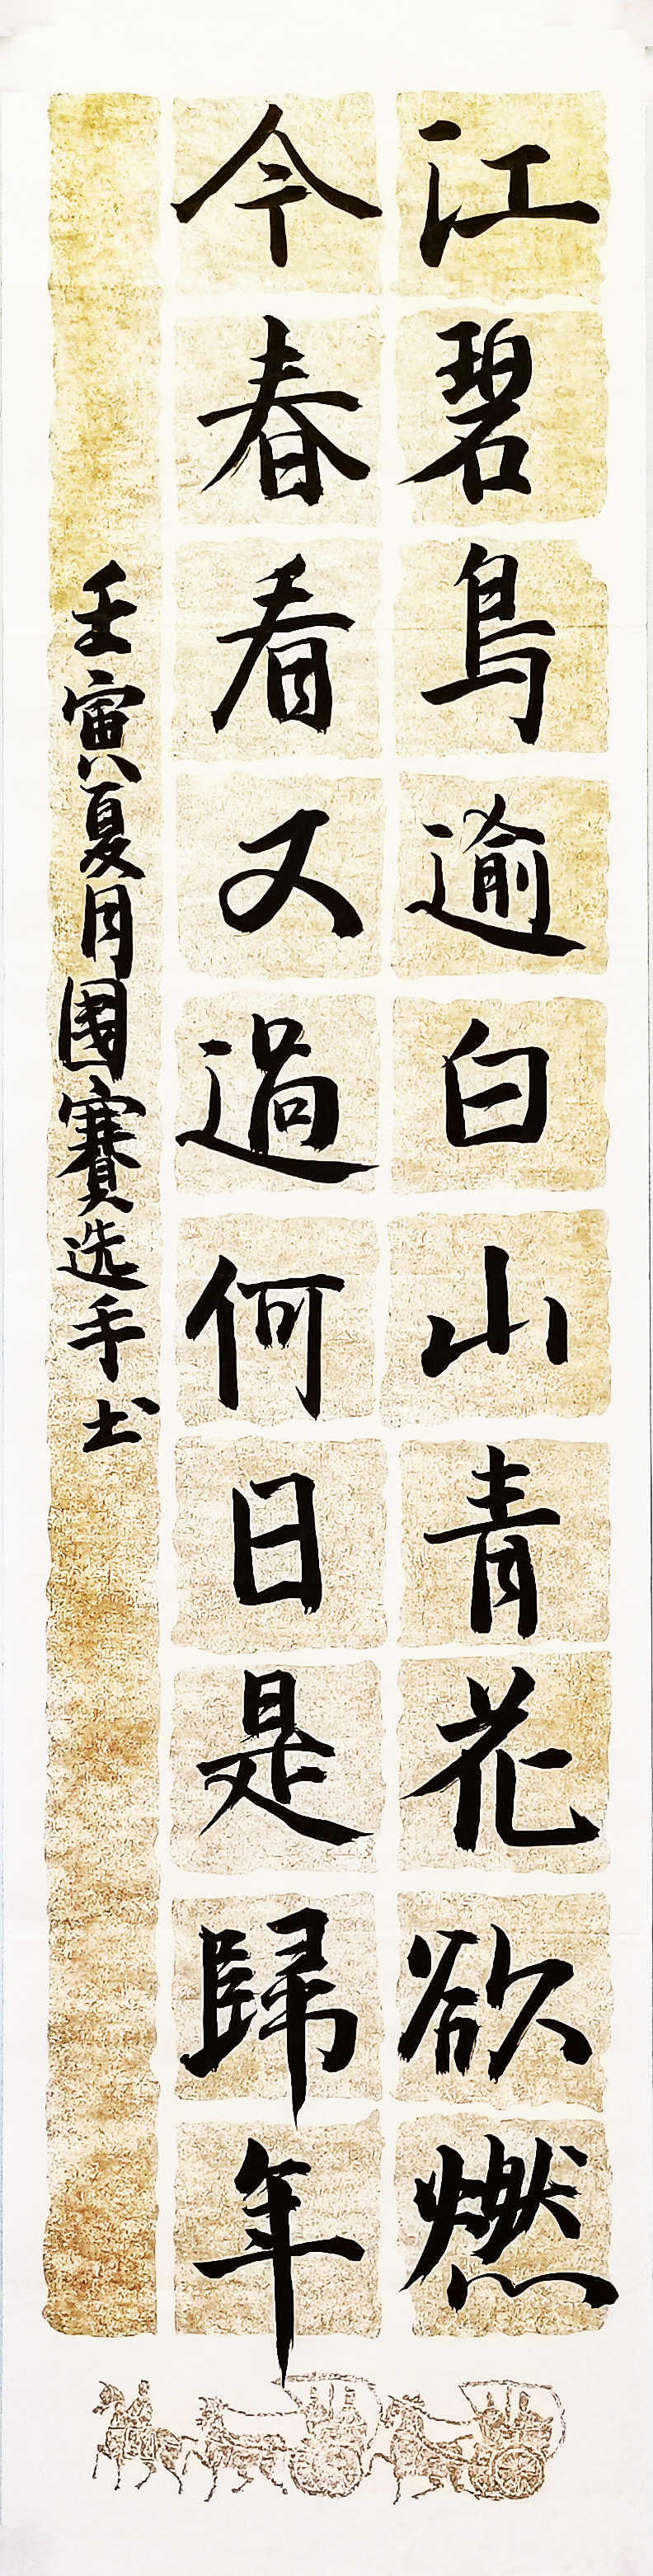 江碧鳥逾白山青花欲燃
今春看又過何日是歸年
壬寅夏月國賽选手书